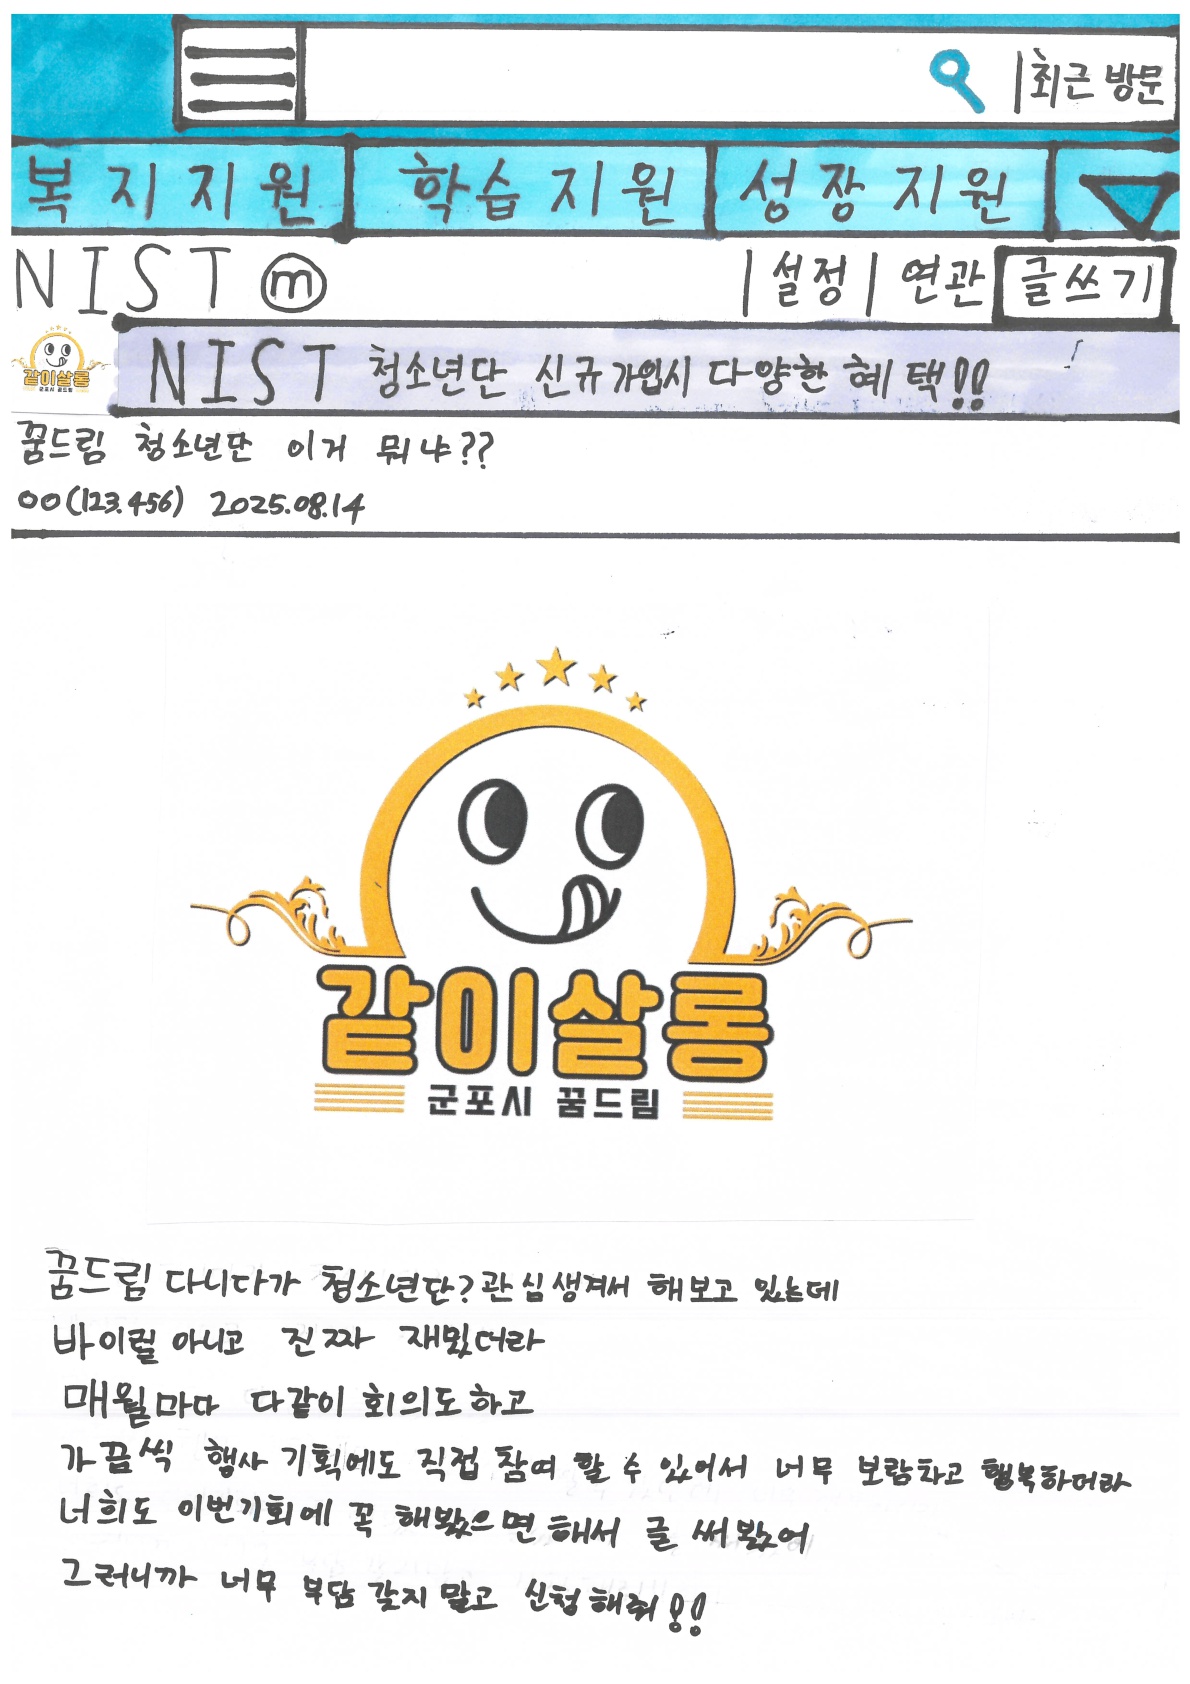 |최근 방문
복지지원 학습지원 성장지원
NIST ⓜ |설정| 연관 글쓰기
같이살롱
군포시 꿈드림
NIST 청소년단 신규가입시 다양한 혜택!!
꿈드림 청소년단 이거 뭐냐??
ㅇㅇ(123.456) 2025.08.14
같이살롱
군포시 꿈드림
꿈드림 다니다가 청소년단? 관심생겨서 해보고 있는데
바이럴 아니고 진짜 재밌더라
매월마다 다같이 회의도하고
가끔씩 행사 기획에도 직접 참여 할 수 있어서 너무 보람차고 행복하더라
너희도 이번기회에 꼭 해봤으면 해서 글 써봤어
그러니까 너무 부담 갖지 말고 신청해줘!!